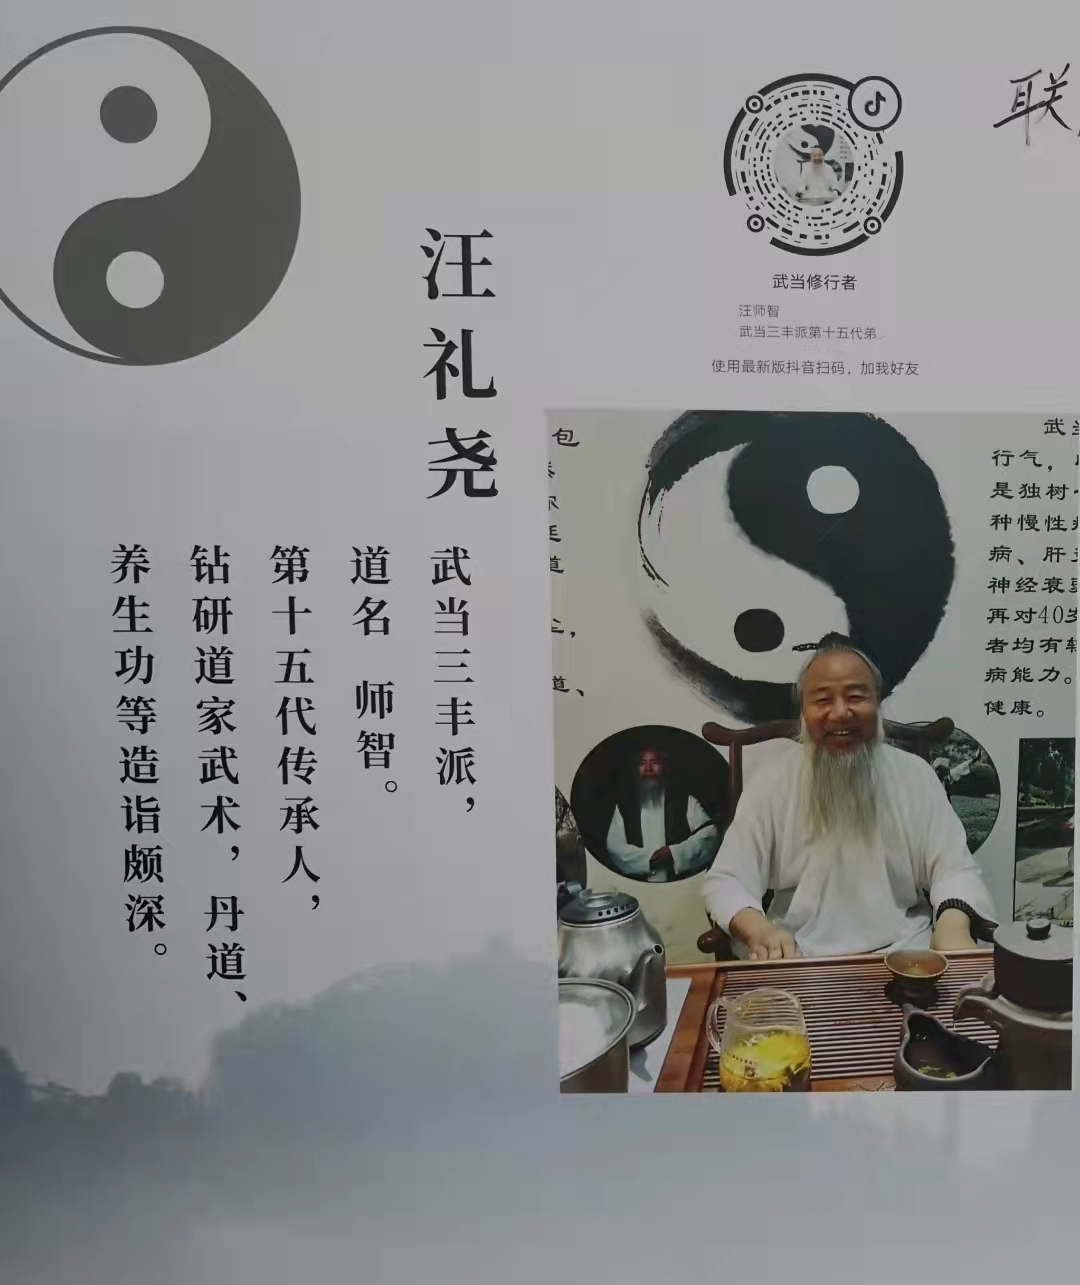 汪礼尧
武当三丰派，
道名 师智。
第十五代传承人，
钻研道家武术，丹道、
养生功等造诣颇深。
联
武当修行者
汪师智
武当三丰派第十五代弟...
使用最新版抖音扫码，加我好友
包
道
道、
武当
行气，
是独树
种慢性
病、肝
神经衰
再对40岁
者均有
病能力。
健康。